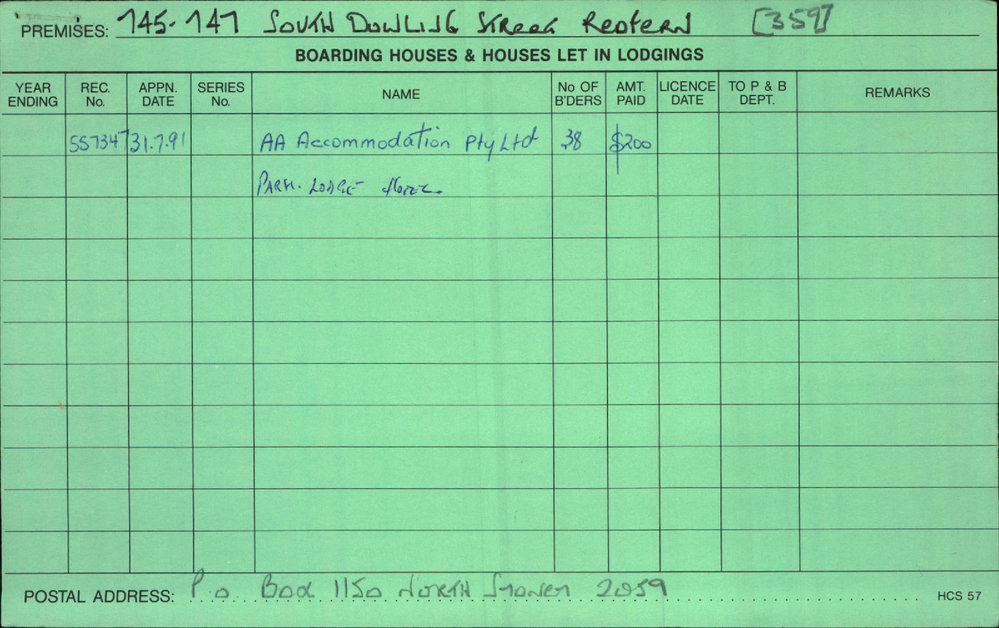 PREMISES: 745-747 SOUTH DOWLING STREET REDFERN [359]
BOARDING HOUSES & HOUSES LET IN LODGINGS
YEAR ENDING REC. No. APPN. DATE SERIES No. NAME No OF B'DERS AMT. PAID LICENCE DATE TO P & B DEPT. REMARKS
557347 31.7.91 AA Accommodation Pty Ltd 38 $200
PARK LODGE HOTEL
POSTAL ADDRESS: P.O BOX 1150 NORTH SYDNEY 2059
HCS 57